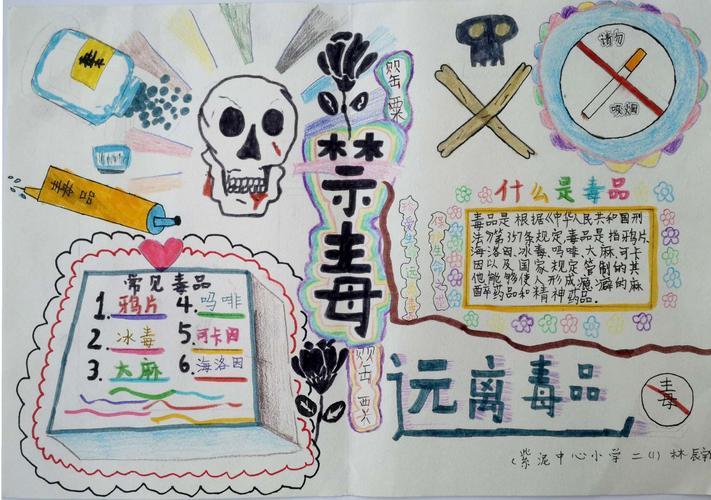 毒
毒品
罂粟
禁毒
罂粟
常见毒品
1.鸦片 4.吗啡
2.冰毒 5.可卡因
3.大麻 6.海洛因
请勿
吸烟
什么是毒品
毒品是根据《中华人民共和国刑
法》第357条规定,毒品是指鸦片、
海洛因、冰毒、吗啡、大麻、可卡
因以及国家规定管制的其
他能够使人形成瘾癖的麻
醉药品和精神药品.
珍爱生命远离毒品
远离毒品
毒
(紫泥中心小学 二(1) 林辰